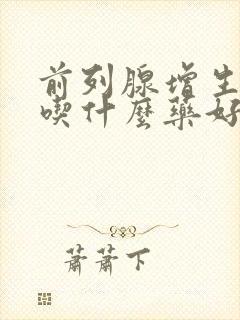 前列腺增生
喫什麼藥好
蕭蕭下